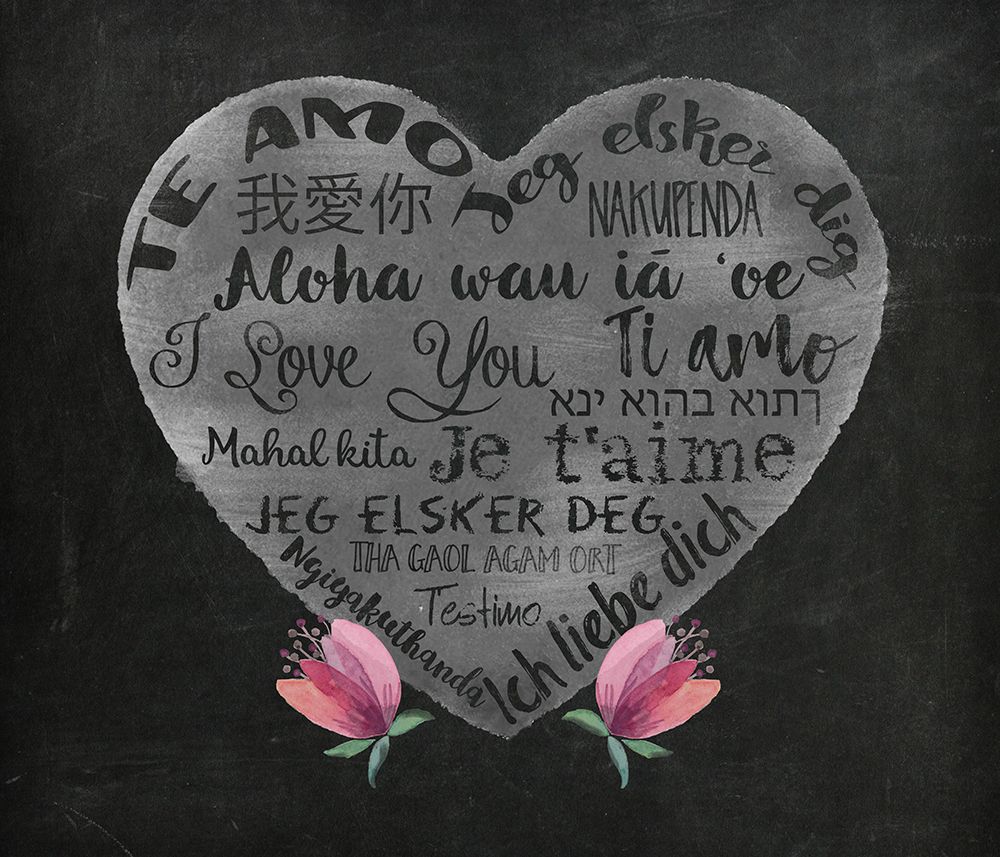 TE AMO
Jeg elsker dig
我愛你
NAKUPENDA
Aloha wau iā ʻoe
I Love You
Ti amo
ךתוא בהוא ינא
Mahal kita
Je t'aime
JEG ELSKER DEG
THA GAOL AGAM ORT
Ngiyakuthanda
Testimo
Ich liebe dich